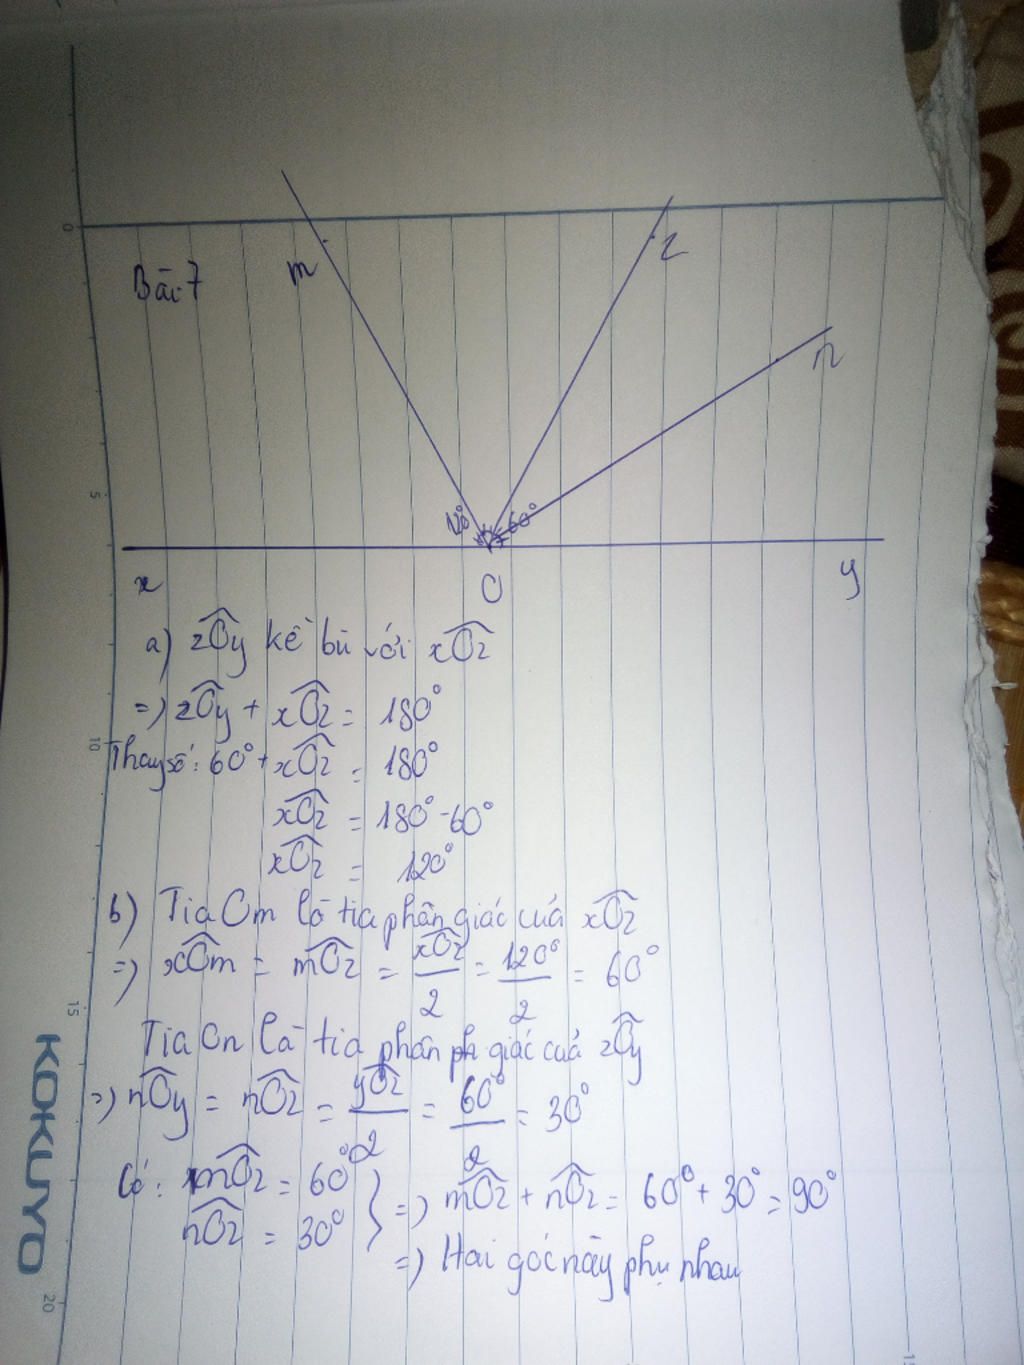 Bài 7
m
z
n
120° 60°
x O y
a) zÔy kề bù với xÔz
=) zÔy + xÔz = 180°
Thay số: 60° + xÔz = 180°
xÔz = 180° - 60°
xÔz = 120°
b) Tia Om là tia phân giác của xÔz
=) xÔm = mÔz = xÔz/2 = 120°/2 = 60°
Tia On là tia phân ph giác của zÔy
=) nÔy = nÔz = yÔz/2 = 60°/2 = 30°
Có: mÔz = 60°
nÔz = 30° } =) mÔz + nÔz = 60° + 30° = 90°
=) Hai góc này phụ nhau
0
5
10
15
20
KOKUYO